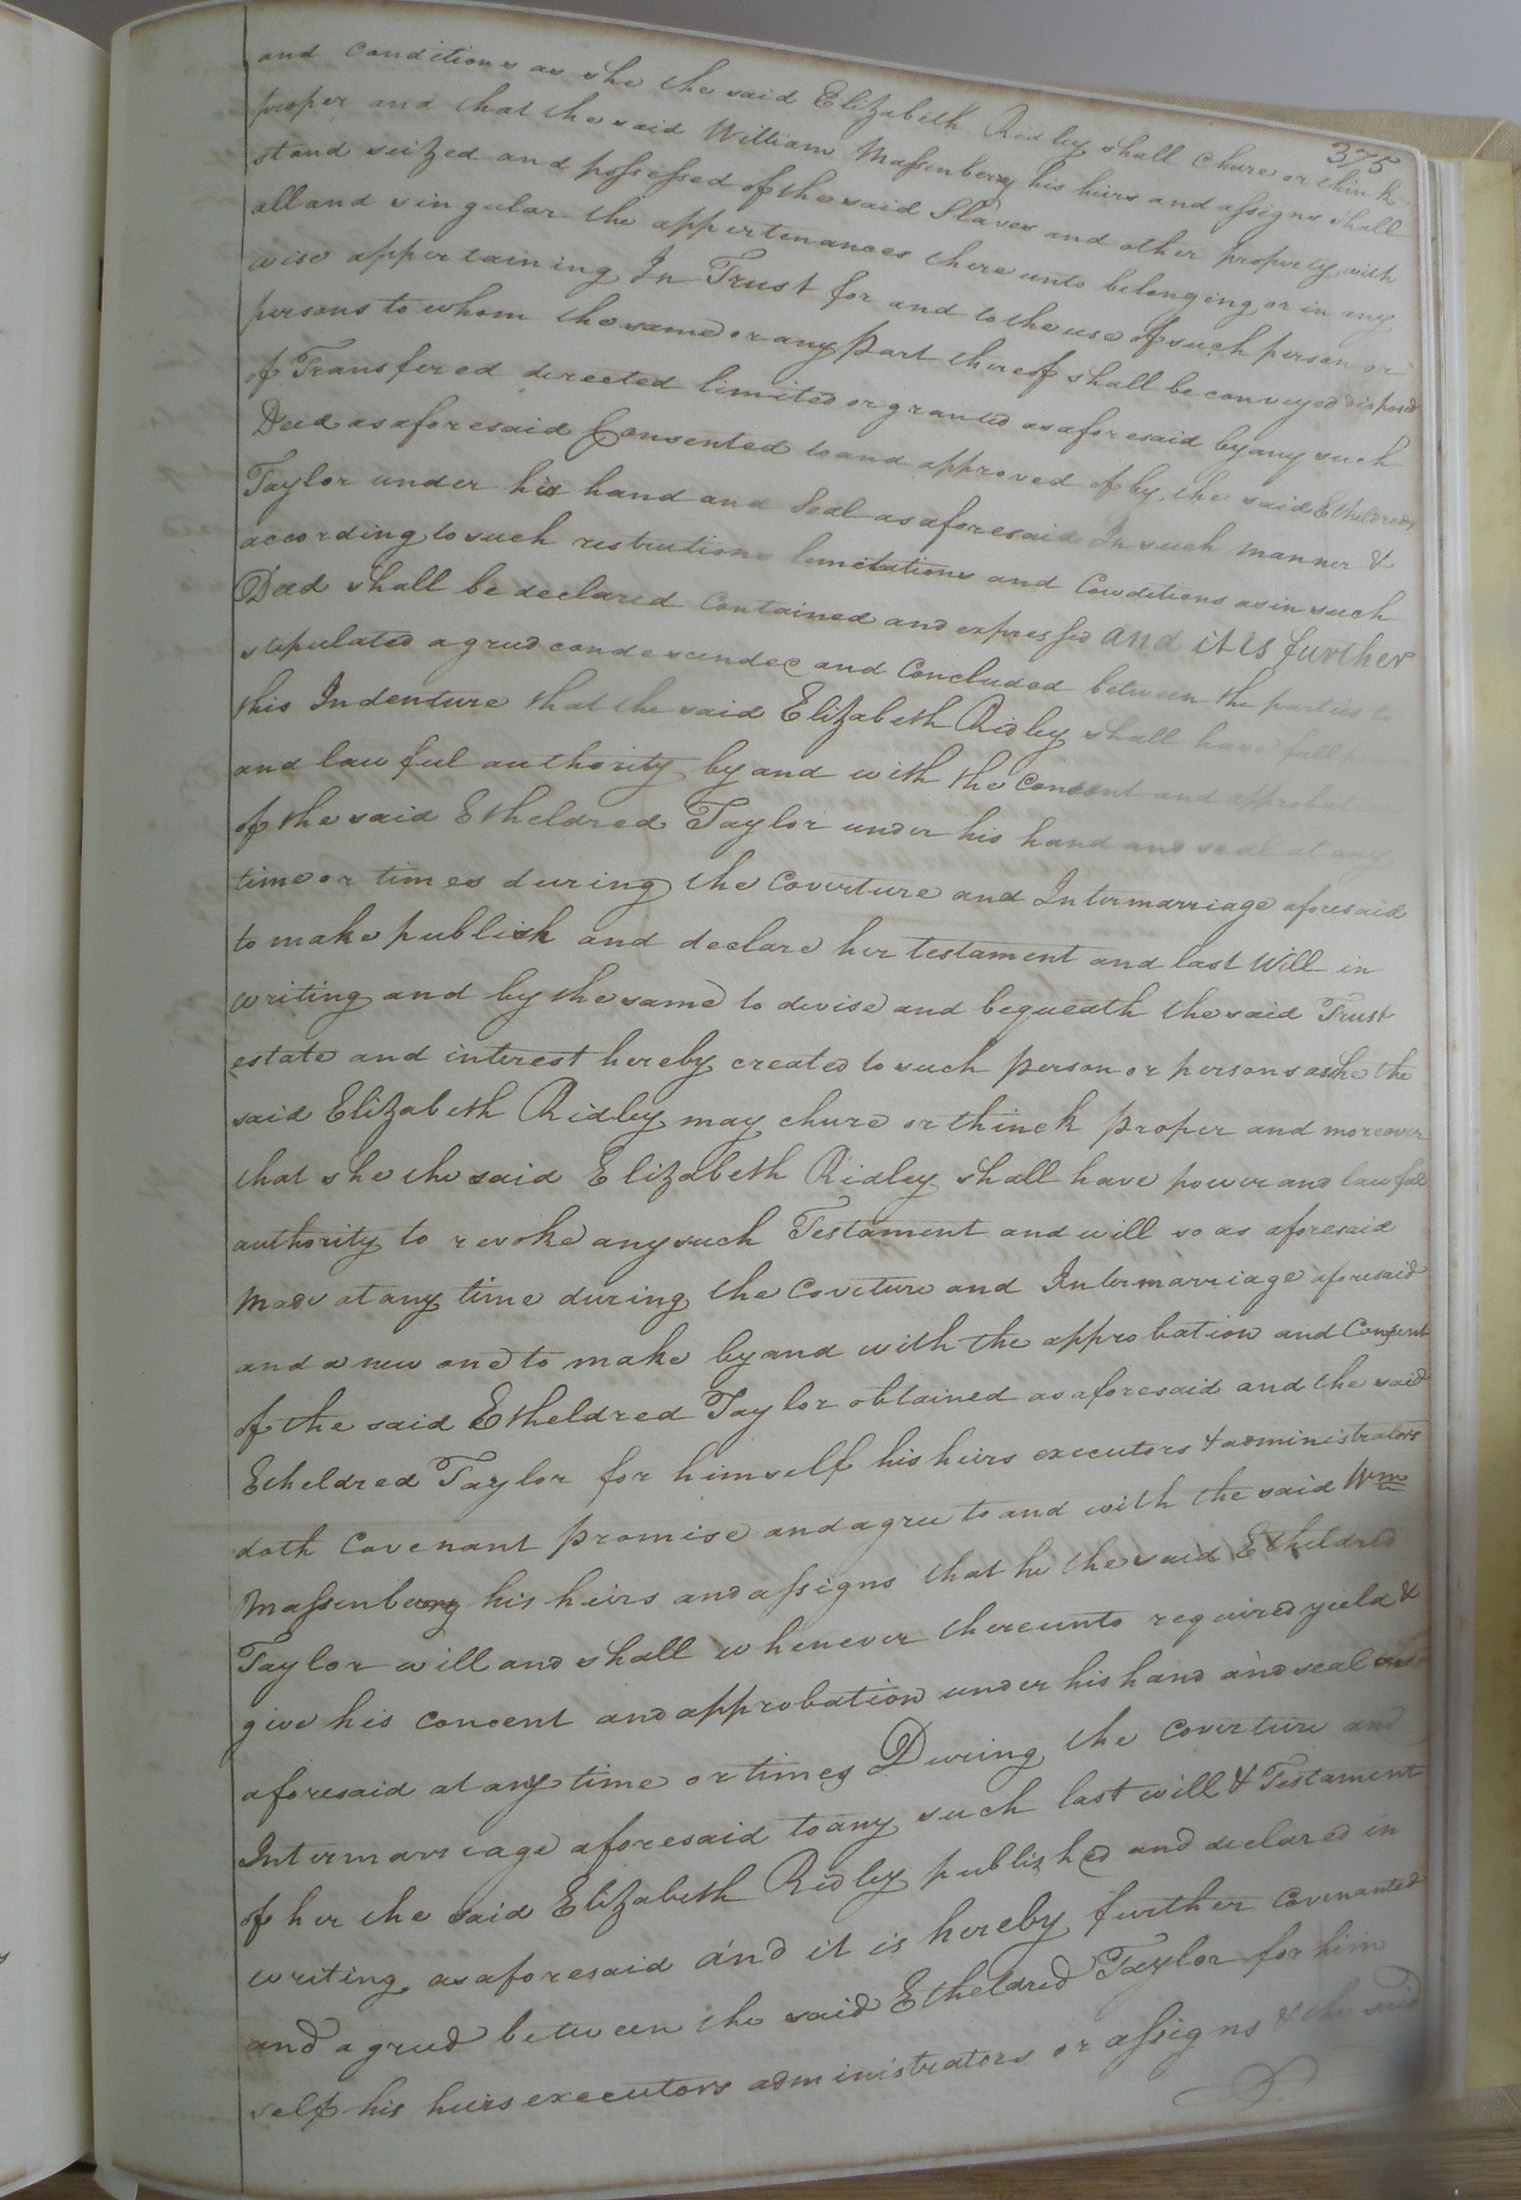 375
and conditions as she the said Elizabeth Ridley shall chuse or think
proper and that the said William Massenberg his heirs and assigns shall
stand seized and possessed of the said Slaves and other property with
all and singular the appertenances thereunto belonging or in any
wise appertaining In Trust for and to the use of such person or
persons to whom the same or any part thereof shall be conveyed disposed
of Transfered directed limited or granted as aforesaid by any such
Deed as aforesaid Consented to and approved of by the said Etheldred
Taylor under his hand and Seal as aforesaid In such manner &
according to such restrictions limitations and Conditions as in such
Deed shall be declared Contained and expressed and it is further
stipulated agreed condescended and Concluded between the parties to
this Indenture that the said Elizabeth Ridley shall have full
and lawful authority by and with the Consent and
of the said Etheldred Taylor under his hand and seal at any
time or times during the Coverture and Intermarriage aforesaid
to make publish and declare her testament and last Will in
writing and by the same to devise and bequeath the said Trust
estate and interest hereby created to such person or persons as she the
said Elizabeth Ridley may chuse or thinck proper and moreover
that she the said Elizabeth Ridley shall have power and lawful
authority to revoke any such Testament and will so as aforesaid
made at any time during the Coveture and Intermarriage aforesaid
and a new one to make by and with the approbation and Consent
of the said Etheldred Taylor obtained as aforesaid and the said
Etheldred Taylor for himself his heirs executors & administrators
doth Covenant promise and agree to and with the said Wm
Massenberg his heirs and assigns that he the said Etheldred
Taylor will and shall whenever thereunto required yield &
give his concent and approbation under his hand and seal as
aforesaid at any time or times During the Coverture and
Intermarriage aforesaid to any such last will & Testament
of her the said Elizabeth Ridley published and declared in
writing as aforesaid and it is hereby further Covenanted
and agreed between the said Etheldred Taylor for him
self his heirs executors administrators or assigns & the said